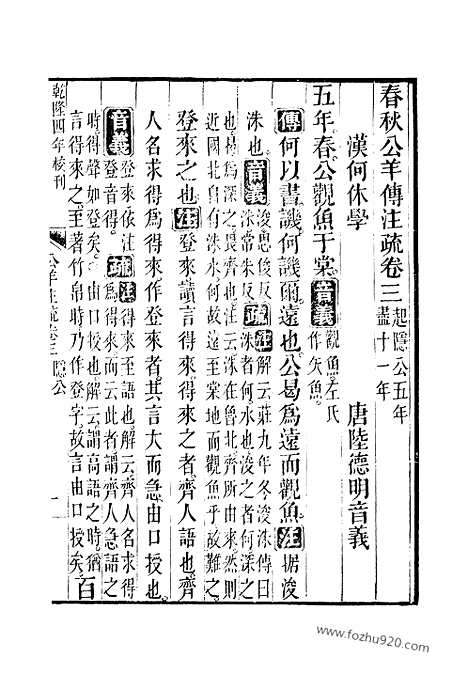 春秋公羊傳注疏卷三
起隱公五年
盡十一年
漢何休學　唐陸德明音義
五年春公觀魚于棠音義觀魚左氏
作矢魚
傳何以書譏何譏爾遠也公曷爲遠而觀魚注据浚
洙也音義浚思俊反
洙音常朱反疏注解云莊九年冬浚洙傳曰
洙者何水也浚之者何深之
也曷爲深之畏齊也注云洙在魯北齊所由來然則
近國北自有洙水何故遠至棠地而觀魚乎故難之
登來之也注登來讀言得來得來之者齊人語也齊
人名求得爲得來作登來者其言大而急由口授也
音義登來依注
登音得疏注得來至語也解云齊人名求得
爲得來而云此者謂齊人急語之
時得聲如登矣由口授也解云謂高語之時猶
言得來之至著竹帛時乃作登字故言由口授矣百
乾隆四年校刊
公羊注疏卷三隱公
一
www.fozhu920.com